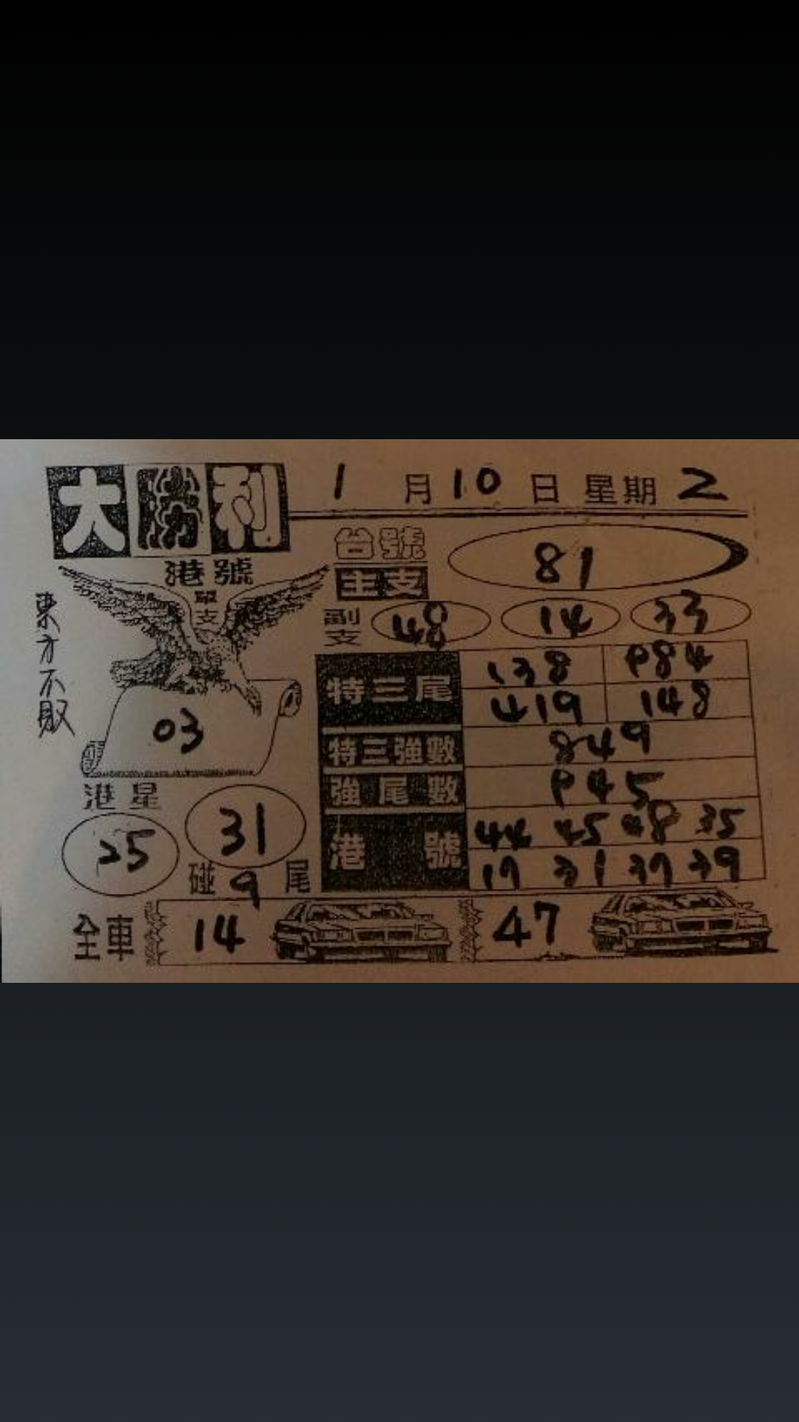 大勝利
1月10日 星期2
港號
單支
03
東方不敗
台號
主支
81
副支 48 14 33
特三尾 138 984
419 148
特三強數 849
強尾數 945
港號 44 45 48 35
17 31 37 39
港星
25 31
碰9尾
全車 14 47